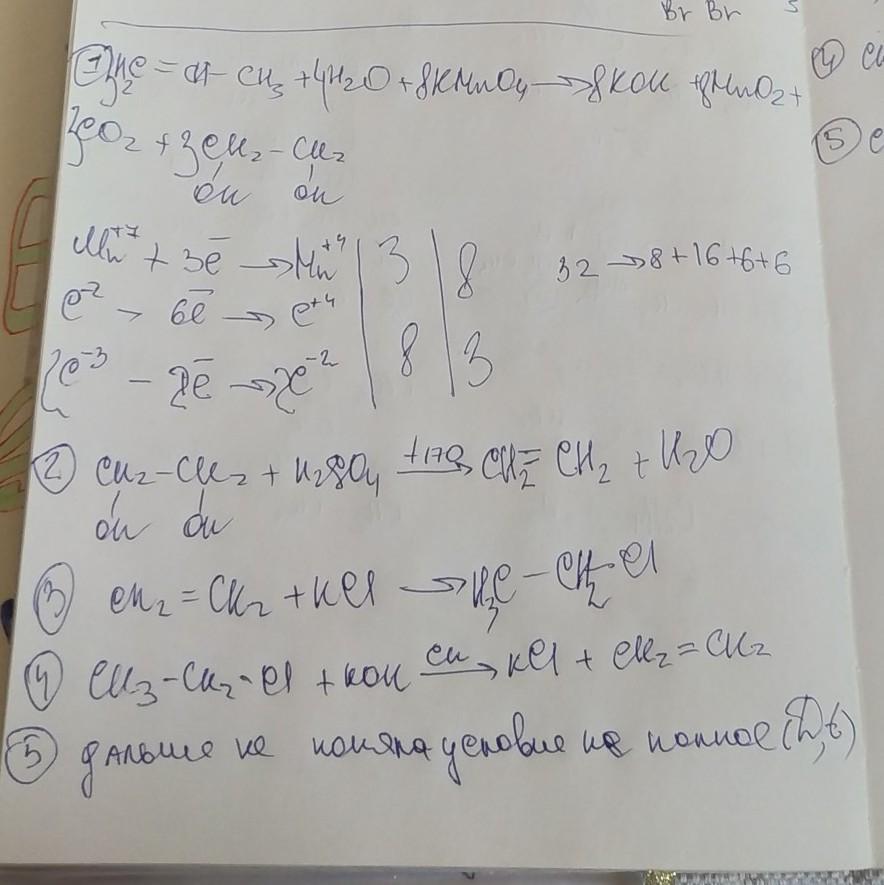 Br Br 5
① H₂C = CH - CH₃ + 4H₂O + 8KMnO₄ → 8KOH + 8MnO₂ +
④ CH
3CO₂ + 3CH₂ - CH₂
⑤ C
OH OH
Mn⁺⁷ + 3e̅ → Mn⁺⁴ | 3 | 8 32 → 8 + 16 + 6 + 6
C⁻² - 6e̅ → C⁺⁴
C⁻³ - 2e̅ → C⁻² | 8 | 3
② CH₂ - CH₂ + H₂SO₄ +170→ CH₂ = CH₂ + H₂O
OH OH
③ CH₂ = CH₂ + HCl → H₃C - CH₂ - Cl
④ CH₃ - CH₂ - Cl + KOH сп→ KCl + CH₂ = CH₂
⑤ дальше не поняла условие не полное (D, t)